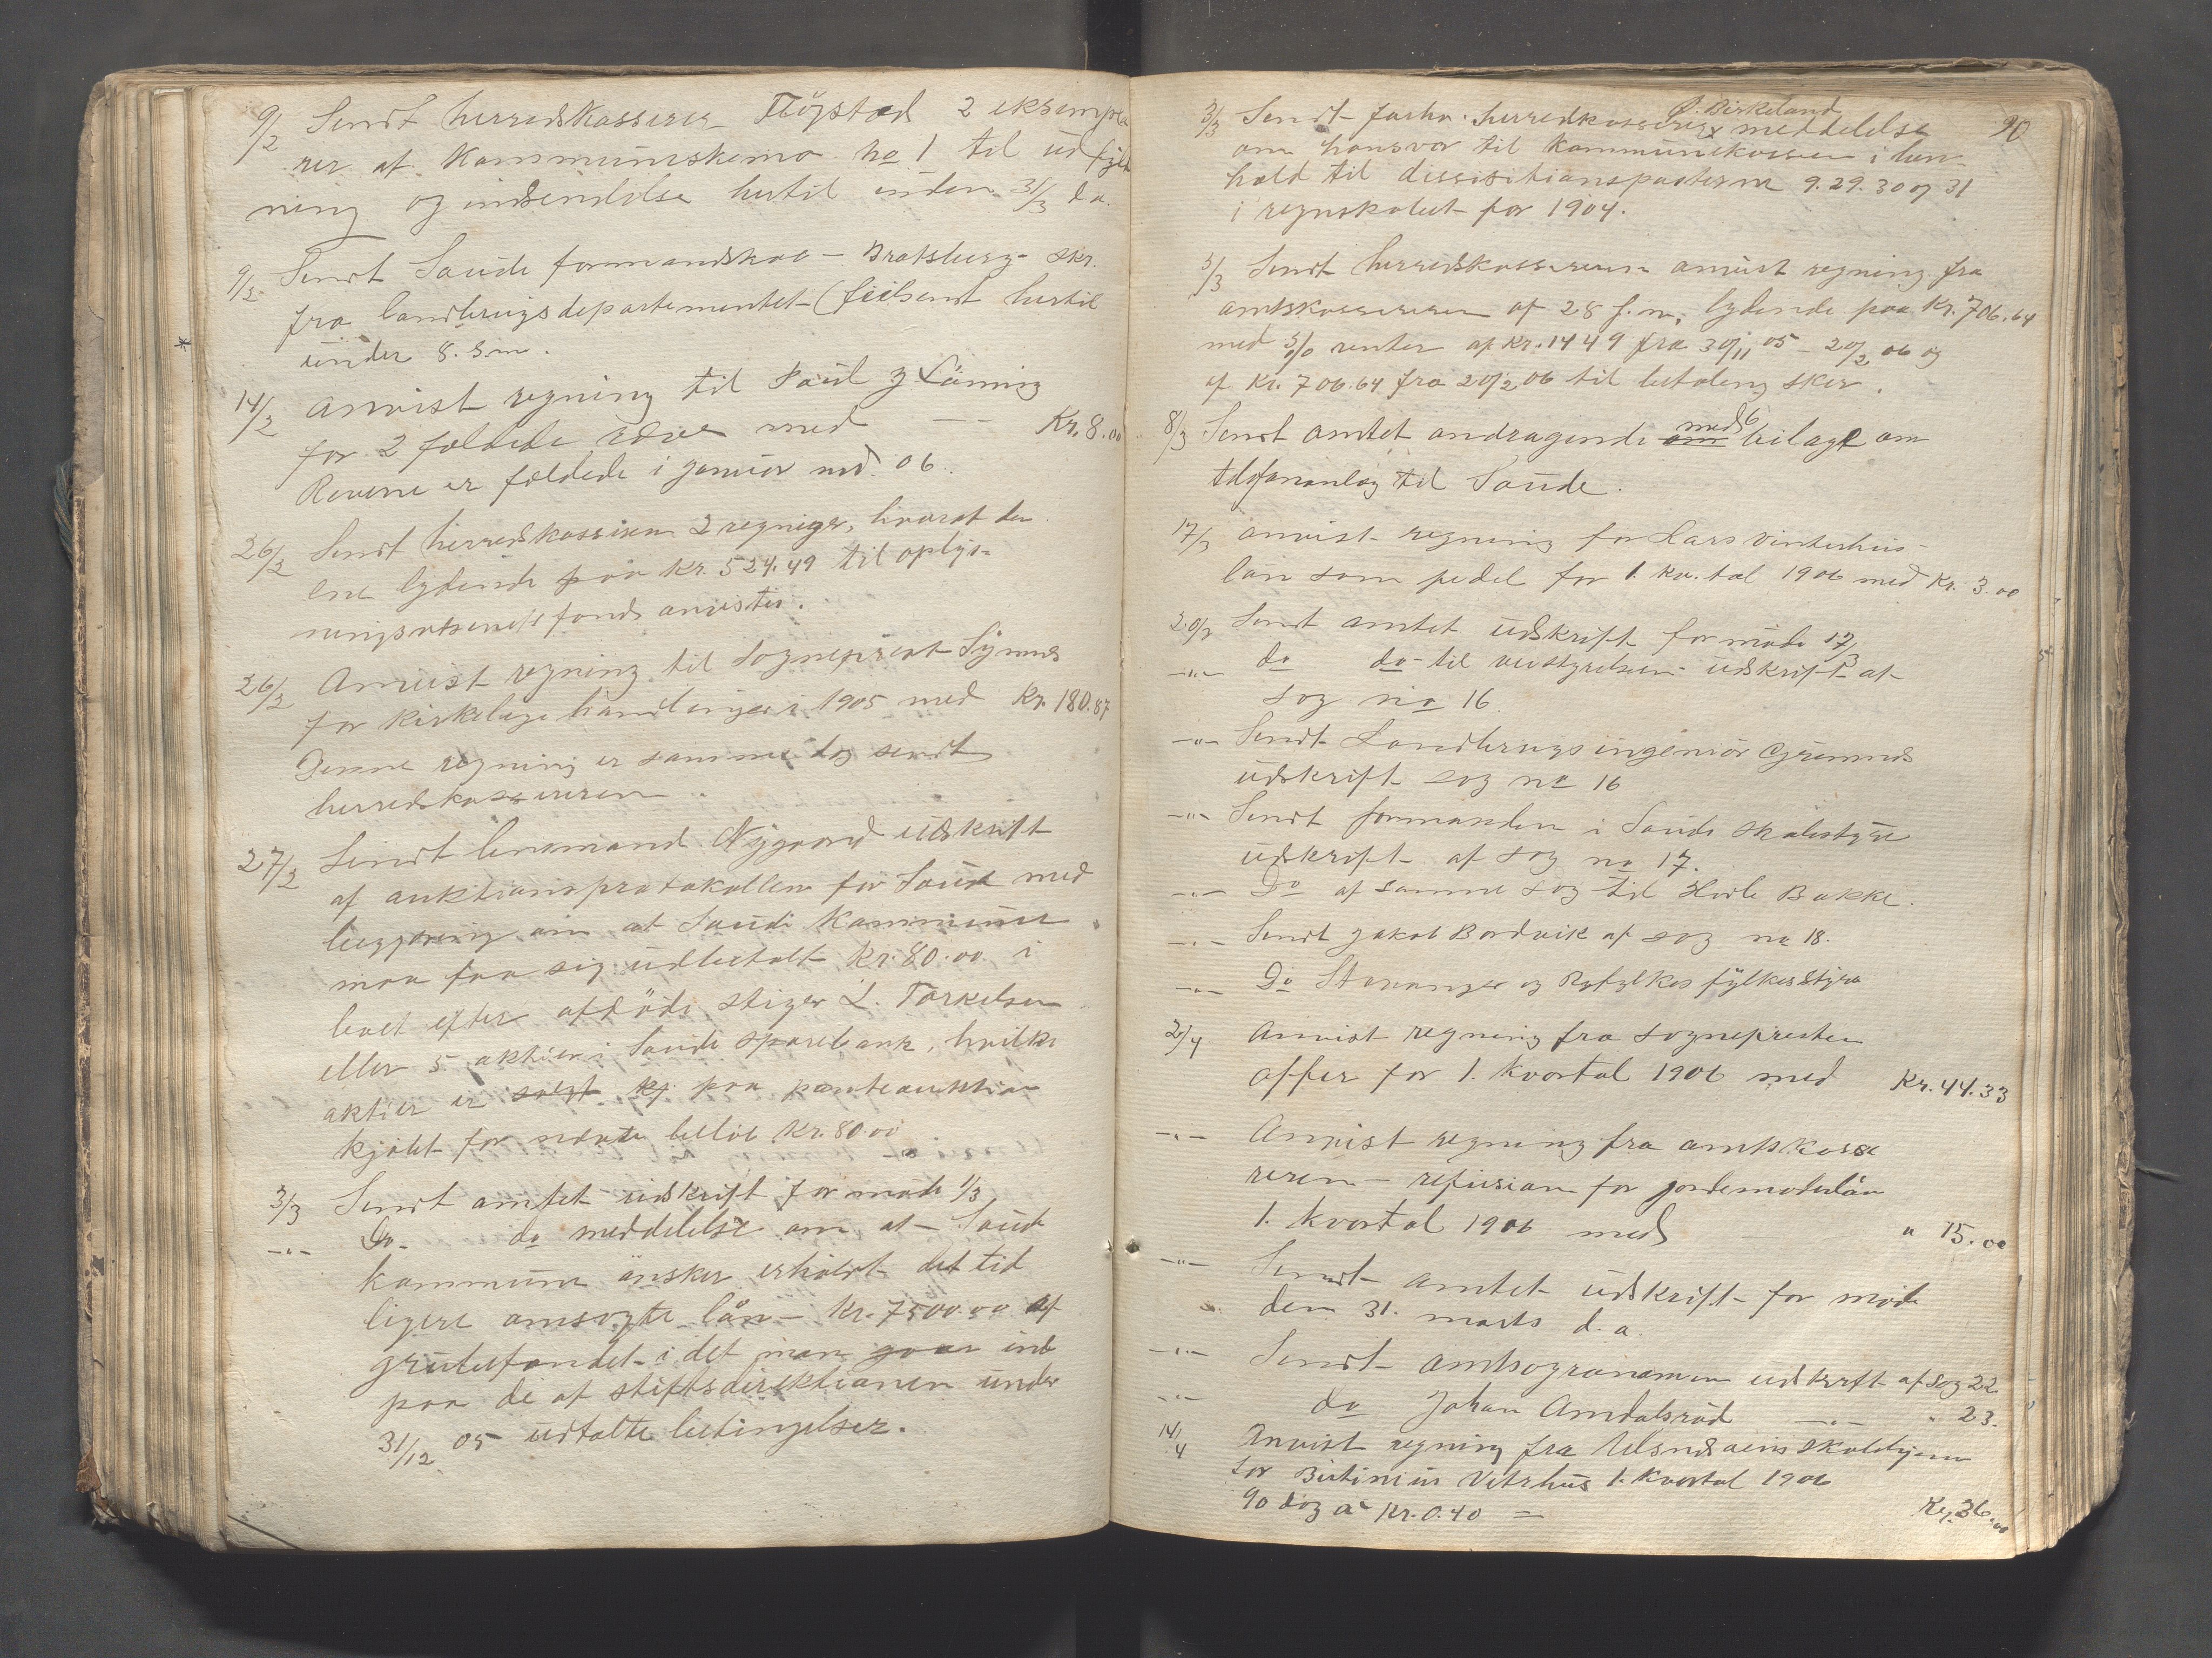 9/2 Sendt herredskasserer Fløystad 2 eksempla
rer af Kommuneskema no 1 til udfyld
ning og indsendelse hertil inden 31/3 d.a.
9/2 Sendt Saude formandskab - Bratsberg - skr.
fra landbrugsdepartementet (feilsendt hertil
under 8. s.m.
14/2 Anvist regning til Paul
for 2 fældede ræve med — Kr. 8.00
Rævene er fældede i januar md. 06.
26/2 Sendt herredskassereren 2 regninger, hvorat den
ene lydende paa Kr. 524.49 til oplys-
fonds anvistes.
26/2 Anvist regning til sogneprest Synnes
for kirkelige handlinger i 1905 med Kr. 180.87
Denne regning er samme dag sendt
herredskassereren
27/2 Sendt lensmand Nygaard udskrift
af auktionsprotokollen for Saude med
begjæring om at Saude Kommune
maa faa sig udbetalt Kr. 80.00 i
boet efter afdøde stiger L. Torkelsen
eller 5 aktier i Saude sparebank, hvilke
aktier er solgt kj paa panteauktion
kjøbt for nævnte beløb Kr. 80.00
3/3 Sendt amtet udskrift for møde 1/3
-"- Do. do meddelelse om at Saude
kommune ønsker erholdt det tid
ligere ansøgte lån - Kr. 7500.00 af
idet man gaar ind
paa de af stiftsdirektionen under
31/12 05 udtalte betingelser.
90
Ø. Birkeland
3/3 Sendt forhv. herredskasserer x meddelelse
om hansvar til Kommunekassen i hen-
hold til dissisitionsposterne 9. 29. 30 og 31
i regnskabet for 1904.
3/3 Sendt herredskassereren anvist regning fra
amtskassereren af 28 f.m. lydende paa Kr. 706.64
med 5% renter af Kr. 1449 fra 30/11 05 - 20/2 06 og
af Kr. 706.64 fra 20/2 06 til betaling sker.
med 6
8/3 Sendt amtet andragende om bilage om
telefonanlæg til Saude.
17/3 Anvist regning for Lars Vinterhus
løn som pedel for 1. kv.tal 1906 med Kr. 3.00
20/3 Sendt amtet udskrift for møde 17/3
-"- do do til veistyrelsen udskrift af
sag no 16.
-"- Sendt Landbrugsingeniør Grimnes
udskrift sag no 16
-"- Sendt formanden i Saude skolestyre
udskrift af sag no 17.
-"- Do af samme sag til Bakke.
-"- Sendt Jakob Bordvik af sag no 18.
-"- Do Stavanger og Ryfylkes fylkesstyre
2/4 Anvist regning fra sognepresten
offer for 1. kvartal 1906 med Kr. 44.33
-"- Anvist regning fra amtskasse
reren - refusion for jordemoderløn
1. kvartal 1906 med — " 15.00
-"- Sendt amtet udskrift for møde
den 31. marts d.a.
-"- Sendt amtsagronomen udskrift af sag 22
-"- do Johan Amdalsrød -"- " 23.
14/4 Anvist regning fra skolehjem
for Vetrhus 1. kvartal 1906
90 dag a Kr. 0.40 = Kr. 36.00